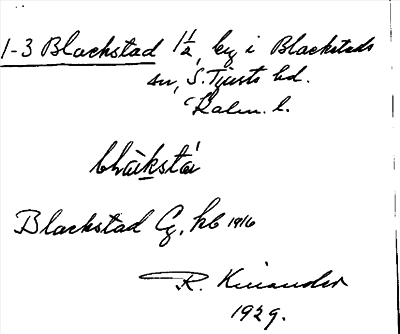 1-3 Blackstad 1½, kg i Blackstads
sn, S. Tjusts hd.
Kalm. l.
Blackstad Cg, hb 1916
R. Kinander
1929.